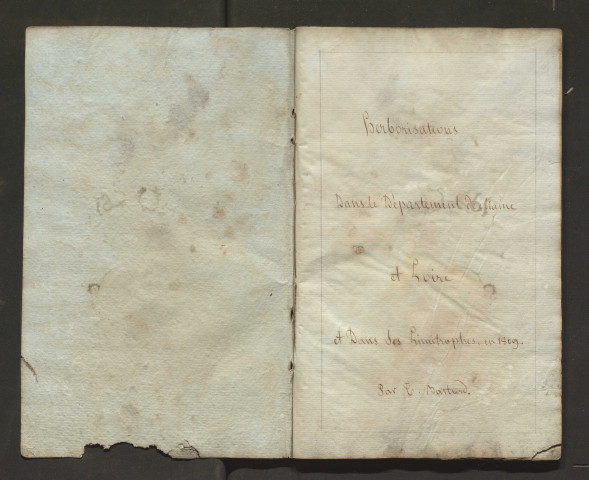 Herborisations
Dans le Département de Maine
et Loire
et Dans ses Limitrophes, en 1809.
Par T. Bastard.